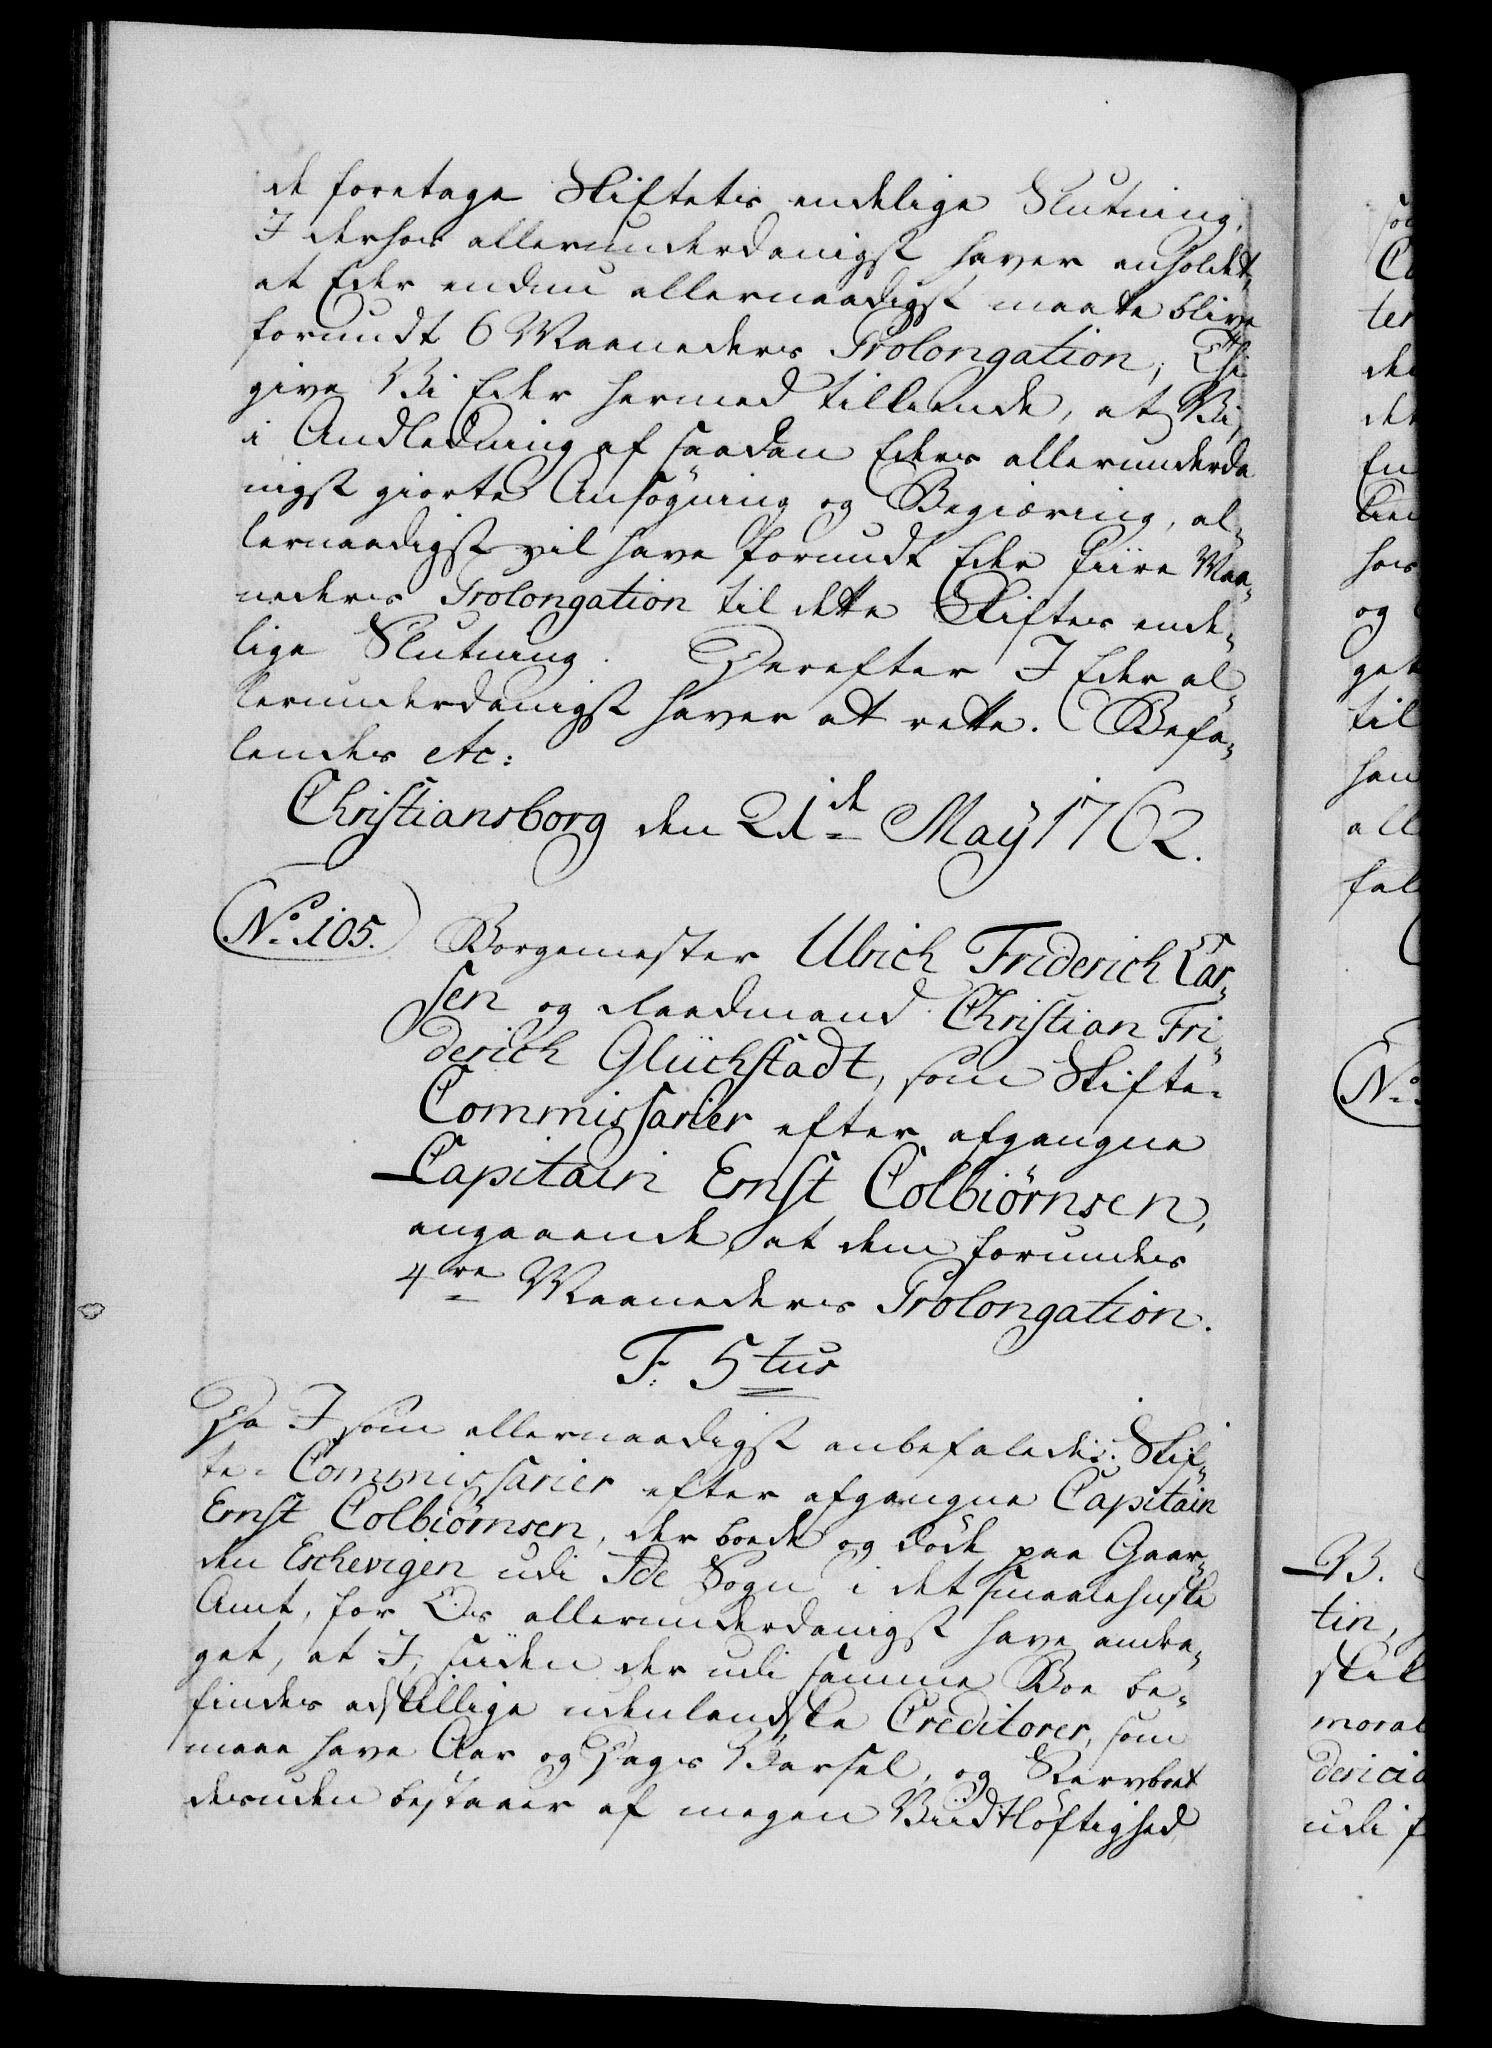 de foretage Skiftets endelige Slutning,
I derhos allerunderdanigst haver anholdet,
at Eder endnu allernaadigst maatte blive
forundt 6 Maaneders Prolongation; Thi
give Vi Eder hermed tilkiende, at Vi,
i Andledning af saadan Eders allerunderda
nigst giorte Ansøgning og Begiæring, al-
lernaadigst vil have forundt Eder fiire Maa-
neders Prolongation til dette Skiftes ende-
lige Slutning. Derefter I Eder al-
lerunderdanigst haver at rette. Befa-
lendes etc:
Christiansborg den 21de May 1762.
No. 105. Borgemester Ulrich Friderich Lar-
sen og Raadmand Christian Fri-
derich Glückstadt, som Skifte-
Commissarier efter afgangne
Capitain Ernst Colbiørnsen,
angaaende at dem forundes
4re Maaneders Prolongation.
F. 5tus
Da I som allernaadigst anbefalede Skif-
te-Commissarier efter afgangne Capitain
Ernst Colbiørnsen, der boede og døde paa Gaar-
den Eschevigen udi Ide Sogn i det Smaalehnske
Amt, for Os allerunderdanigst have andra-
get, at I, siiden der udi samme Boe be-
findes adskillige udenlandske Creditorer, som
maae have Aar og Dags Varsel, og Stervboet
desuden bestaaer af megen Viidtløftighed